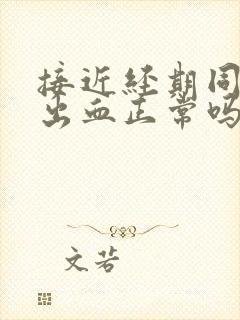 接近经期同
出血正常吗
文若